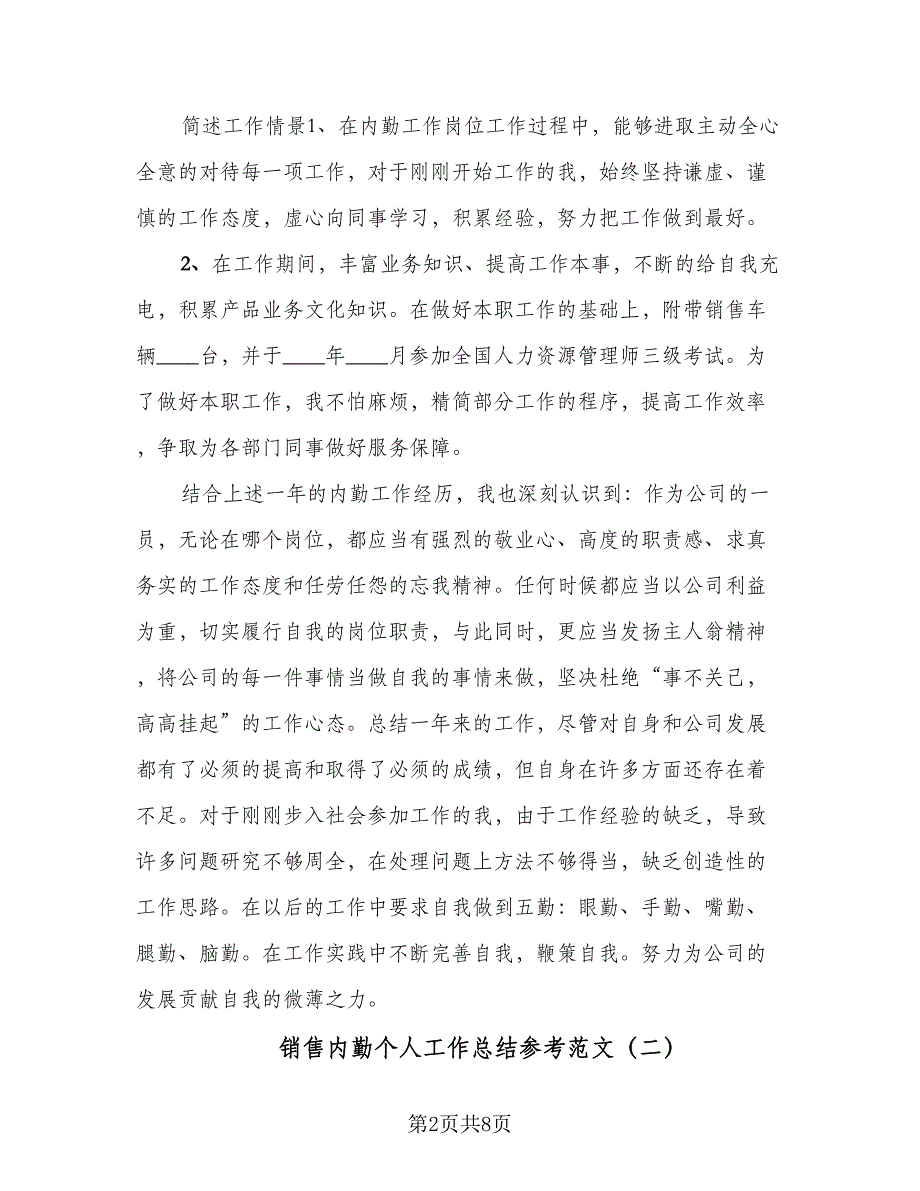 简述工作情景1、在内勤工作岗位工作过程中，能够进取主动全心
全意的对待每一项工作，对于刚刚开始工作的我，始终坚持谦虚、谨
慎的工作态度，虚心向同事学习，积累经验，努力把工作做到最好。
2、在工作期间，丰富业务知识、提高工作本事，不断的给自我充
电，积累产品业务文化知识。在做好本职工作的基础上，附带销售车
辆____台，并于____年____月参加全国人力资源管理师三级考试。为
了做好本职工作，我不怕麻烦，精简部分工作的程序，提高工作效率
，争取为各部门同事做好服务保障。
结合上述一年的内勤工作经历，我也深刻认识到：作为公司的一
员，无论在哪个岗位，都应当有强烈的敬业心、高度的职责感、求真
务实的工作态度和任劳任怨的忘我精神。任何时候都应当以公司利益
为重，切实履行自我的岗位职责，与此同时，更应当发扬主人翁精神
，将公司的每一件事情当做自我的事情来做，坚决杜绝“事不关己，
高高挂起”的工作心态。总结一年来的工作，尽管对自身和公司发展
都有了必须的提高和取得了必须的成绩，但自身在许多方面还存在着
不足。对于刚刚步入社会参加工作的我，由于工作经验的缺乏，导致
许多问题研究不够周全，在处理问题上方法不够得当，缺乏创造性的
工作思路。在以后的工作中要求自我做到五勤：眼勤、手勤、嘴勤、
腿勤、脑勤。在工作实践中不断完善自我，鞭策自我。努力为公司的
发展贡献自我的微薄之力。
销售内勤个人工作总结参考范文（二）
第2页共8页